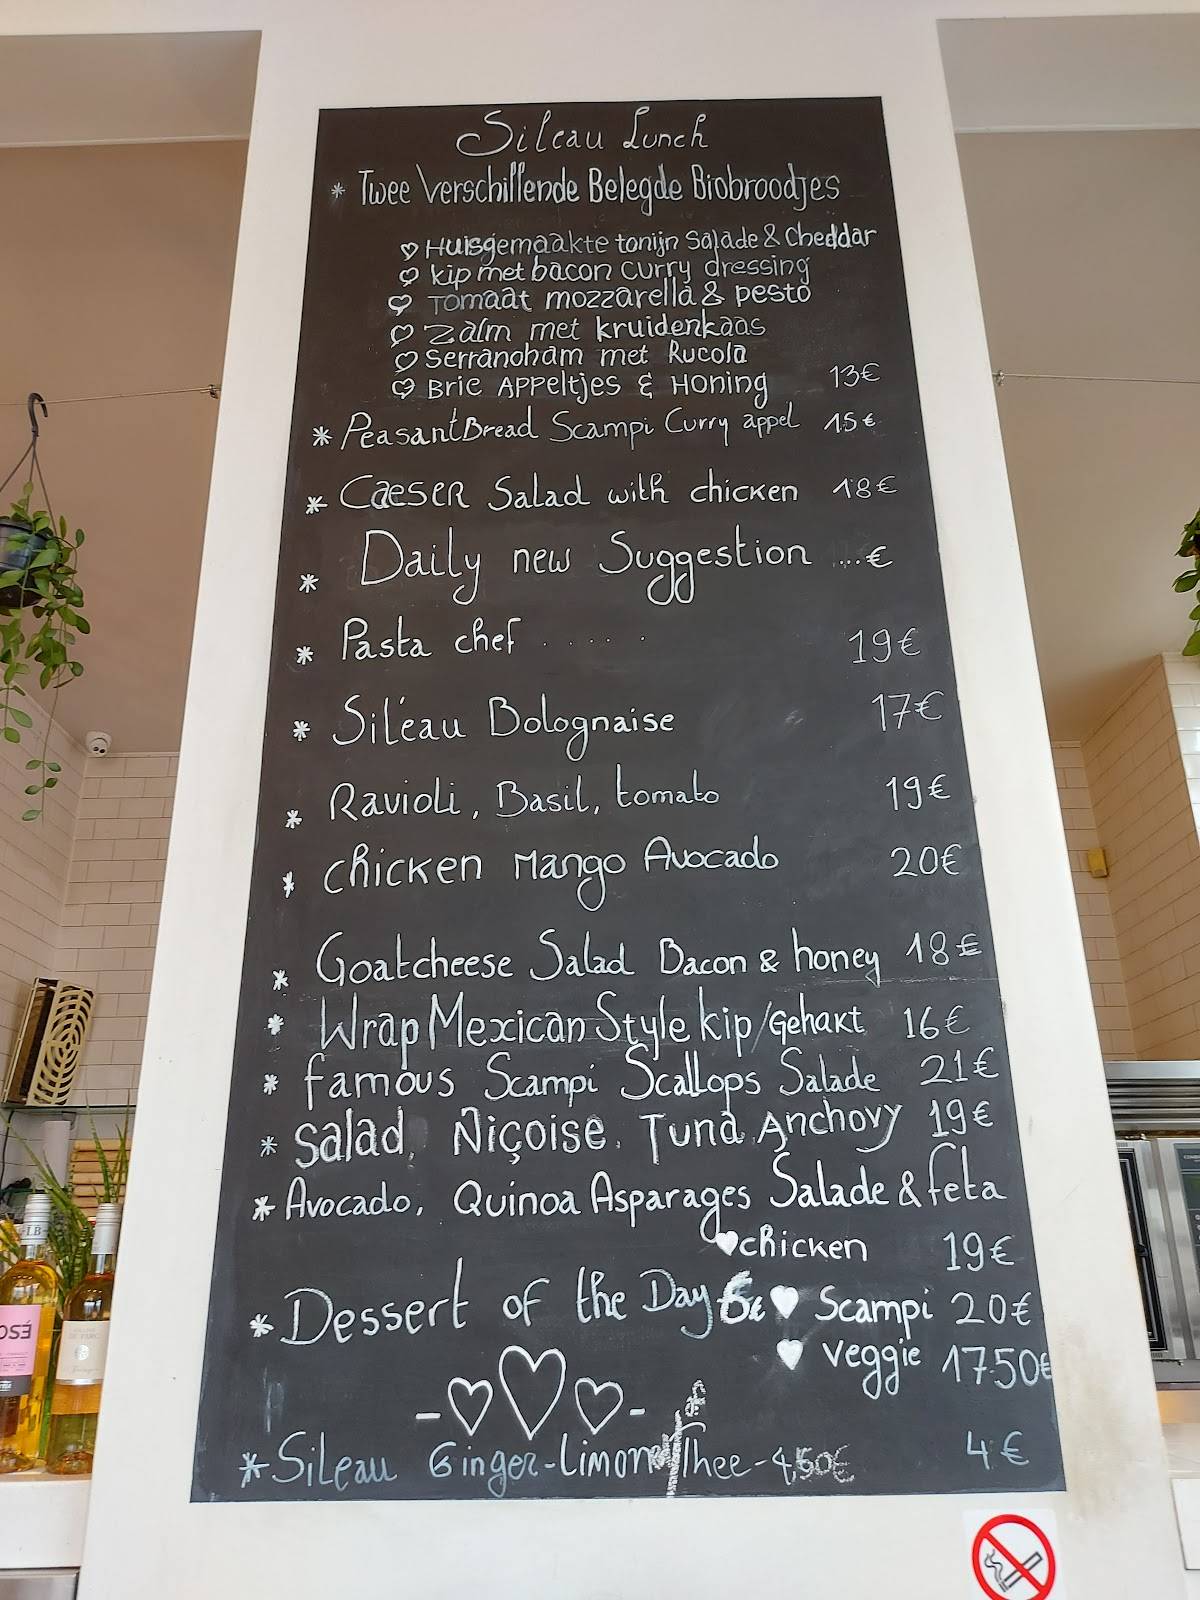 Sileau Lunch
* Twee Verschillende Belegde Biobroodjes
Huisgemaakte tonijn Salade & Cheddar
kip met bacon curry dressing
Tomaat mozzarella & pesto
Zalm met kruidenkaas
Serranoham met Rucola
Brie Appeltjes & Honing 13€
* PeasantBread Scampi Curry appel 15€
* Caeser Salad with chicken 18€
* Daily new Suggestion ...€
* Pasta chef ..... 19€
* Sil'eau Bolognaise 17€
* Ravioli, Basil, tomato 19€
* chicken Mango Avocado 20€
* Goatcheese Salad Bacon & honey 18€
* Wrap Mexican Style kip/Gehakt 16€
* famous Scampi Scallops Salade 21€
* Salad, Niçoise, Tuna, Anchovy 19€
* Avocado, Quinoa Asparages Salade & feta
chicken 19€
* Dessert of the Day 6€ Scampi 20€
veggie 17.50€
* Sileau Ginger-Limone Thee - 4,50€ 4€
LB
OSÉ